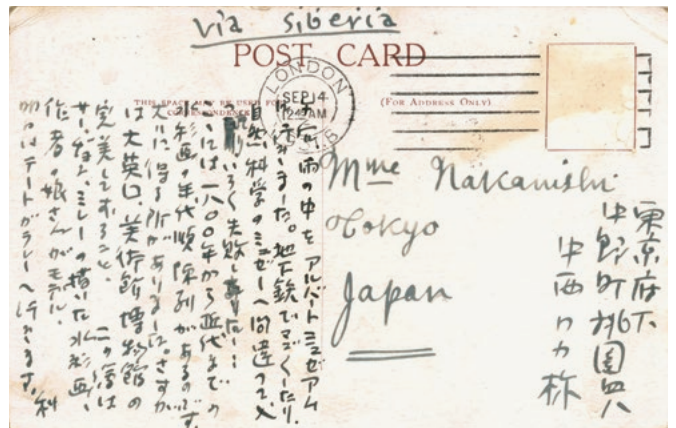 via Siberia
POST CARD
THIS SPACE MAY BE USED FOR
CORRESPONDENCE
(FOR ADDRESS ONLY)
LONDON
SEP 14
AM
Mme Nakanishi
Tokyo
Japan
東京府下
中野町桃園四八
中西
雨の中をアルバートミュゼアム
に行きました。地下鉄で
自然科学のミュゼーへ間違って入
いろ〱失敗しました
ここには一八〇〇年から近代までの
水彩画の年代順陳列があるのです。
大いに得る所がありました。さすが
は大英国、美術館博物館の
完美してること、この絵は
ミレーの描いた水彩画、
作者の娘さんがモデル。
明日はテートガラレーへ行きます。